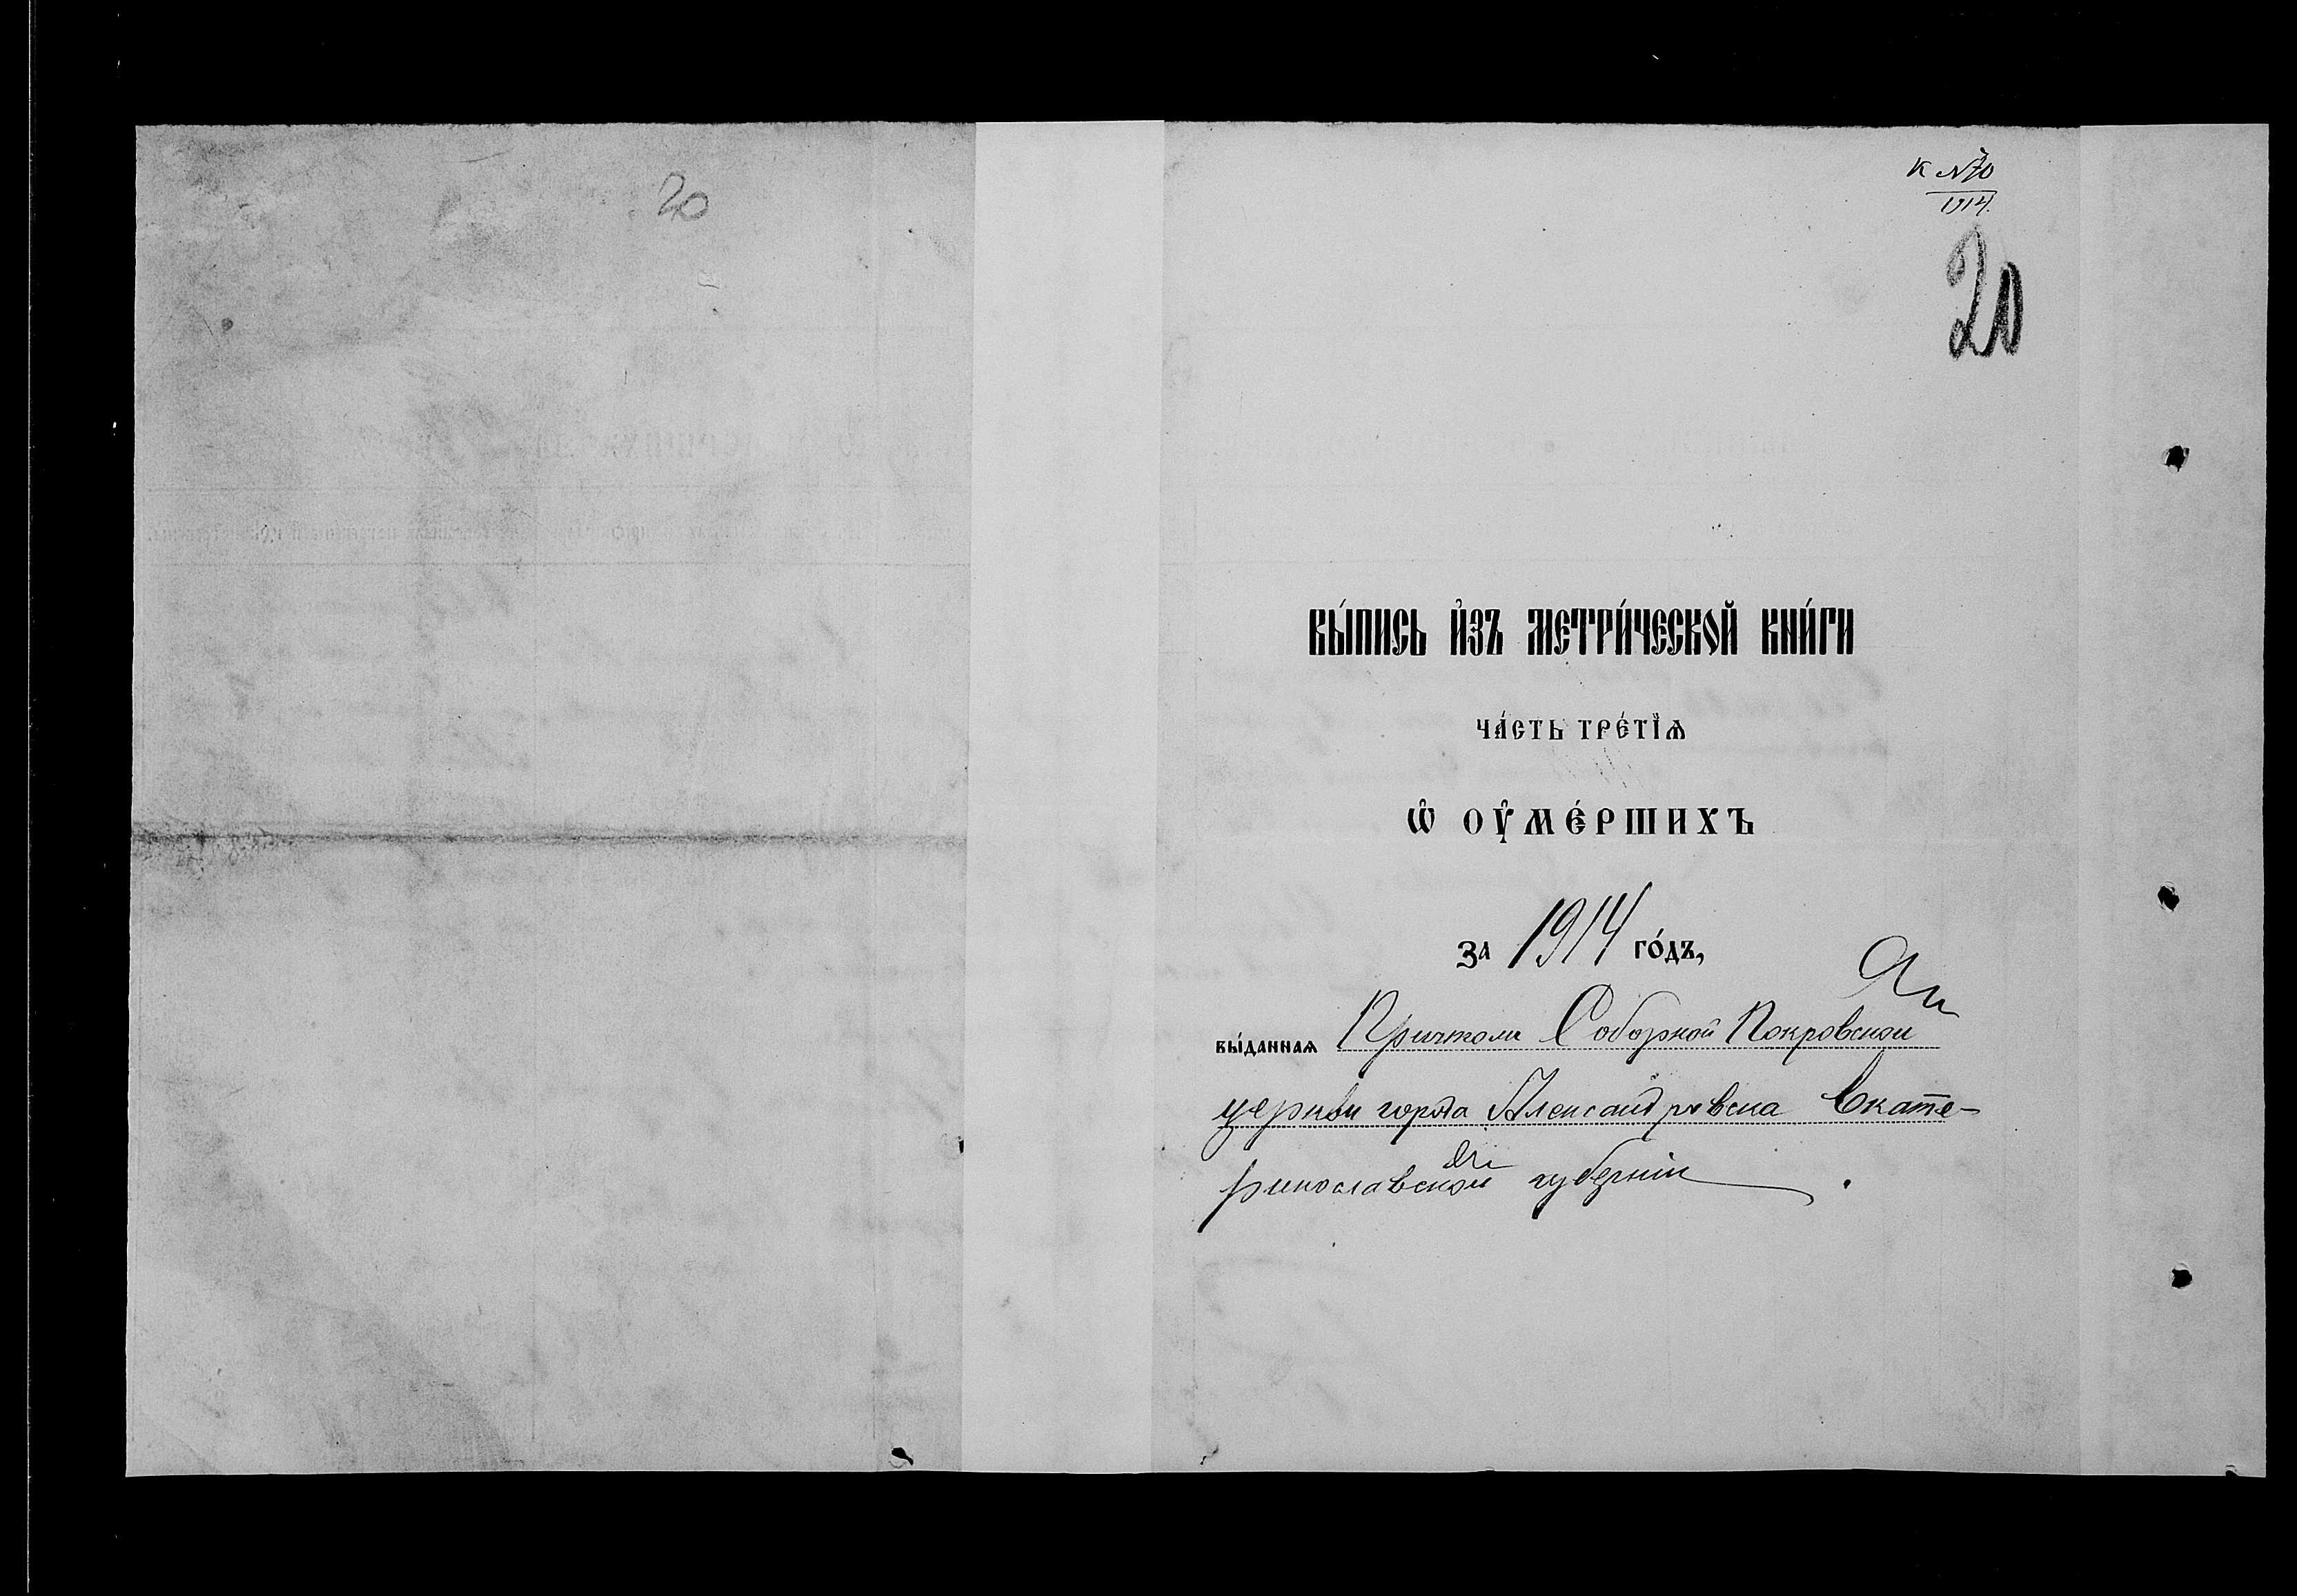 20
К №70
1914.
20
ВЫ́ПИСЬ И҆́ЗЪ МЕТРИ́ЧЕСКОЙ КНИ́ГИ
ЧА́СТЬ ТРЕ́ТІѦ
Ѡ҆ ОУ҆МЕ́РШИХЪ
за 1914 го́дъ,
вы́даннаѧ Причтомъ Соборной Покровской
церкви города Александровска Екате-
ринославской губерніи.